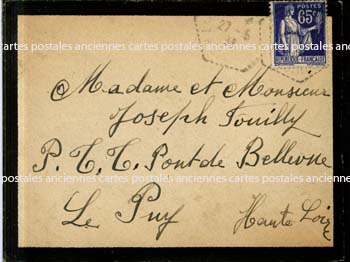 POSTES
65c
REPUBLIQUE FRANÇAISE
Madame et Monsieur
Joseph Fouilly
P. T. T. Pont de Bellevue
Le Puy Haute Loire
cartes postales anciennes cartes postales anciennes cartes postales anciennes
cartes postales anciennes cartes postales anciennes cartes postales anciennes